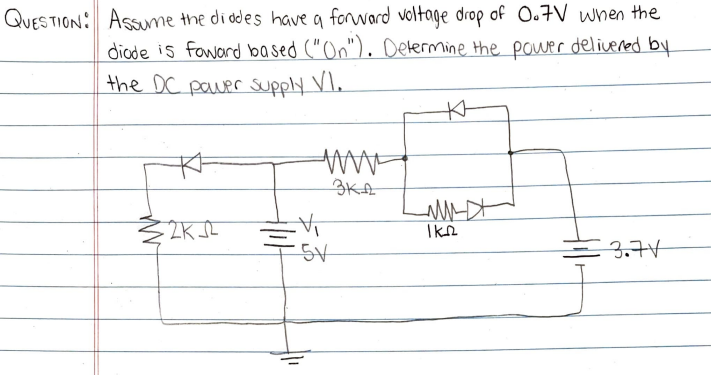 QUESTION: Assume the diodes have a forward voltage drop of 0.7V when the
diode is foward based ("On"). Determine the power delivered by
the DC power supply V1.
3KΩ
2KΩ
V1
5V
1KΩ
3.7V